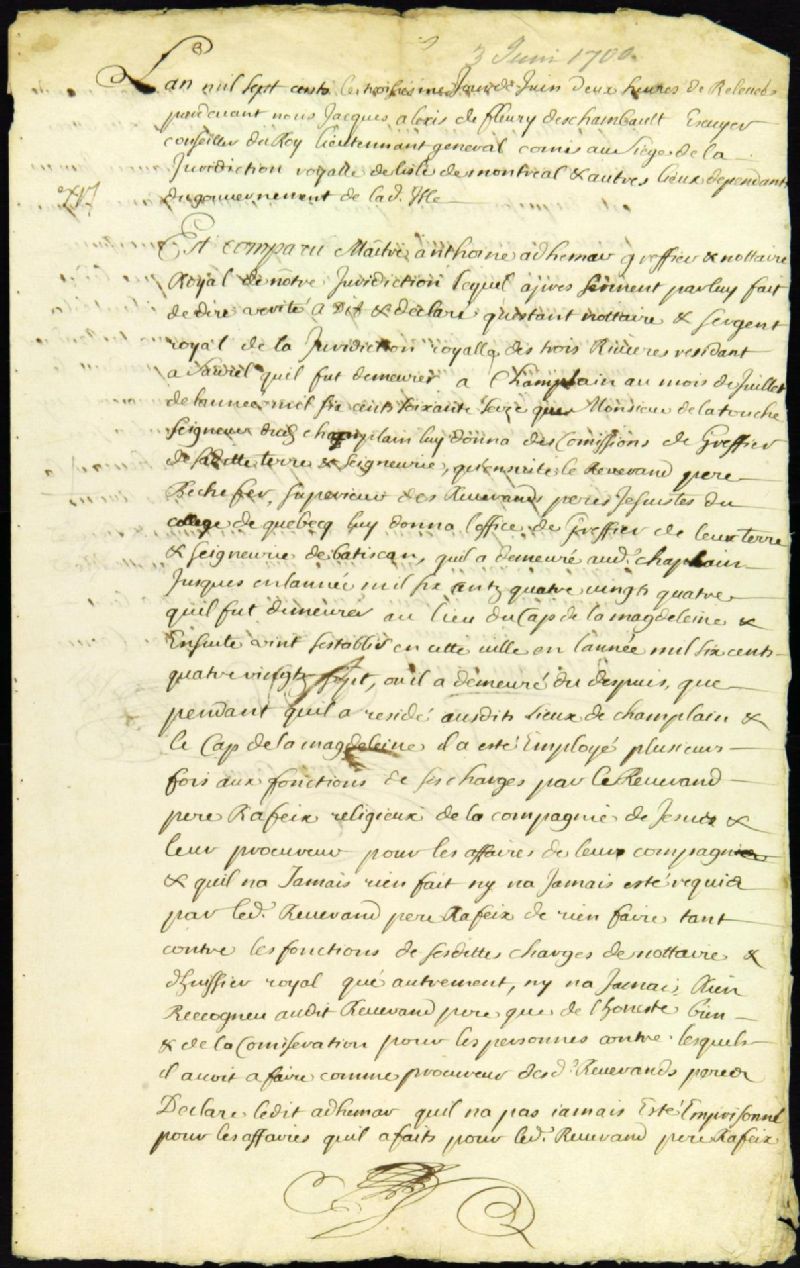 3 Juin 1700.
Lan mil sept cents le troisiesme Jour de Juin deux heures de Relevée
pardevant nous Jacques alexis de fleury deschambault Escuyer
conseiller du Roy lieutennant general comis au siege de la
Juridiction royalle de lisle de montreal & autres lieux dependants
du gouvernement de lad. Isle
Est comparu Maitre anthoine adhemar greffier & nottaire
Royal de nôtre Juridiction lequel apres serment par luy fait
de dire verité à Dit & declaré qu'estant nottaire & sergent
royal de la Juridiction royalle des trois Rivieres residant
a quil fut demeurer a Champlain au mois de Juillet
de lannée mil six cents soixante seize que Monsieur de latouche
seigneur dud champlain luy donna des Comissions de Greffier
de saditte terre & seigneurie, qu'ensuite le Reverand pere
Bechefer, superieur des Reverands peres Jesuistes du
college de quebecq luy donna l'office de Greffier de leur terre
& seigneurie de batiscan, quil a demeuré aud. chaplain
Jusques en lannée mil six centz quatre vingts quatre
quil fut demeurer au lieu du Cap de la magdeleine &
Ensuite vint sestablir en cette ville en lannée mil six cents
quatre viengts sept, ou il a demeuré du depuis, que
pendant quil a residé ausdits Lieux de champlain &
le Cap de la magdeleine il a esté Employé plusieurs
fois aux fonctions de ses charges par le Reuerand
pere Rafeix religieux de la compagnie de Jesus &
leur procureur pour les affaires de leur compagnie
& quil na Jamais rien fait ny na Jamais esté requis
par led. Reuerand pere Rafeix de rien faire tant
contre les fonctions de sesdittes charges de nottaire &
d'huissier royal que autrement, ny na Jamais Rien
Recogneu audit Reuerand pere que de lhoneste bien
& de la Comiseration pour les personnes contre lesquels
il avoit a faire comme procureur desd. Reuerands peres
Declare ledit adhemar quil na pas iamais Esté Emprisonné
pour les affaires quil a faits pour led. Reuerand pere Rafeix